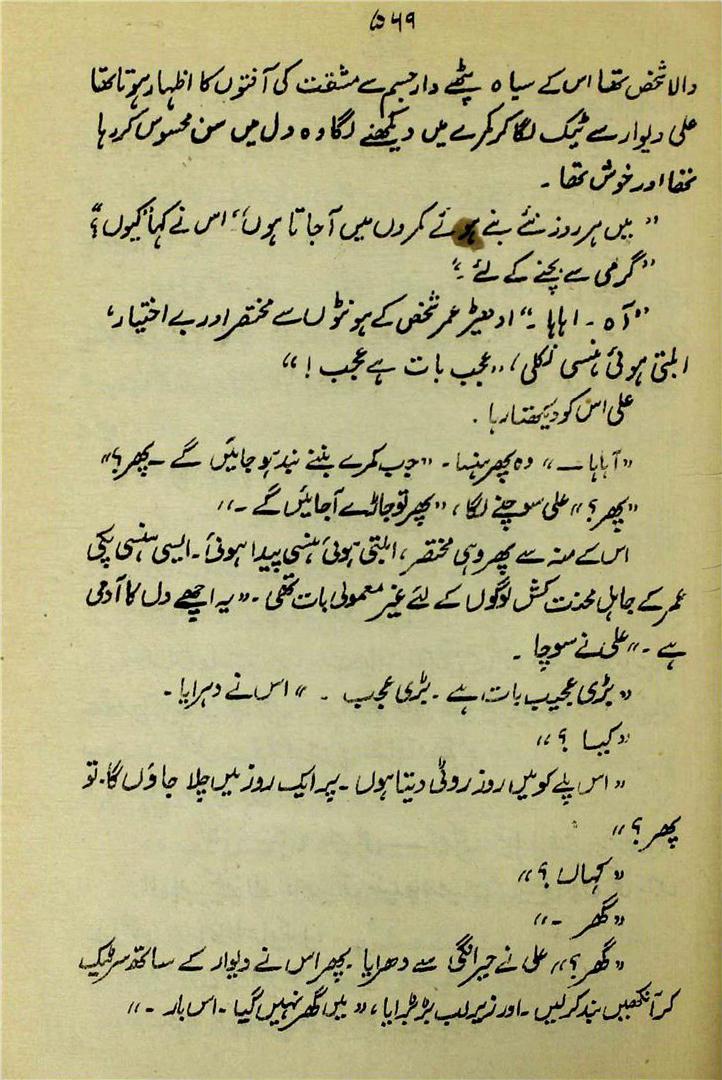 ۵۶۹
والا شخص تھا اس کے سیاہ پٹھے دار جسم سے مشقت کی آفتوں کا اظہار ہوتا تھا
علی دیوار سے ٹیک لگا کر کمرے میں دیکھنے لگا وہ دل میں سن محسوس کر رہا
تھا اور خوش تھا ۔
"میں ہر روز نئے بنے ہوئے کمروں میں آ جاتا ہوں" اس نے کہا "کیوں؟"
"گرمی سے بچنے کے لئے ۔"
"آہ ۔ اہاہا ۔" ادھیڑ عمر شخص کے ہونٹوں سے مختصر اور بے اختیار،
ابلتی ہوئی ہنسی نکلی، "عجب بات ہے عجب !"
علی اس کو دیکھتا رہا ۔
"آہاہا ــ" وہ پھر ہنسا ۔ "جب کمرے بننے بند ہو جائیں گے ۔ پھر؟"
"پھر؟" علی سوچنے لگا، "پھر تو جاڑے آ جائیں گے ۔"
اس کے منہ سے پھر وہی مختصر، ابلتی ہوئی ہنسی پیدا ہوئی ۔ ایسی ہنسی پکی
عمر کے جاہل محنت کش لوگوں کے لئے غیر معمولی بات تھی ۔ "یہ اچھے دل کا آدمی
ہے ۔" علی نے سوچا ۔
"بڑی عجیب بات ہے ۔ بڑی عجب ۔" اس نے دہرایا ۔
"کیا ؟"
"اس پلے کو میں روز روٹی دیتا ہوں ۔ پر ایک روز میں چلا جاؤں گا ۔ تو
پھر ؟"
"کہاں ؟"
"گھر ۔"
"گھر ؟" علی نے حیرانگی سے دھرایا ۔ پھر اس نے دیوار کے ساتھ سر ٹیک
کر آنکھیں بند کر لیں ۔ اور زیر لب بڑبڑایا، "میں گھر نہیں گیا ۔ اس بار ۔"